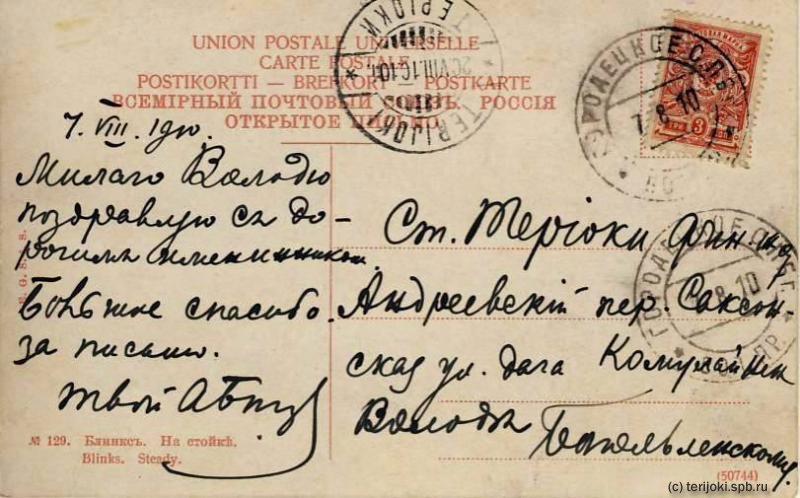 UNION POSTALE UNIVERSELLE
CARTE POSTALE
POSTIKORTTI — BREFKORT — POSTKARTE
ВСЕМІРНЫЙ ПОЧТОВЫЙ РОССІЯ
ОТКРЫТОЕ ПИСЬМО
ТЕРІОКИ
TERIJOKI
7 8 10
3
7. VIII. 1910.
Милаго Володю
поздравляю съ до-
рогимъ именинникомъ.
Большое спасибо
за письмо.
Твой
Ст. Теріоки Фин
Андреевскій пер. Саксон-
ская ул. дача
Володѣ
8.10
№ 129. Блинксъ. На стойкѣ.
Blinks. Steady.
(50744)
(c) terijoki.spb.ru